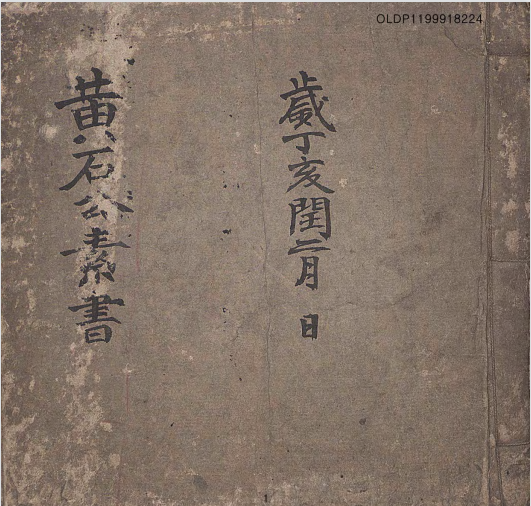 OLDP1199918224
歲丁亥閏二月 日
黃石公素書